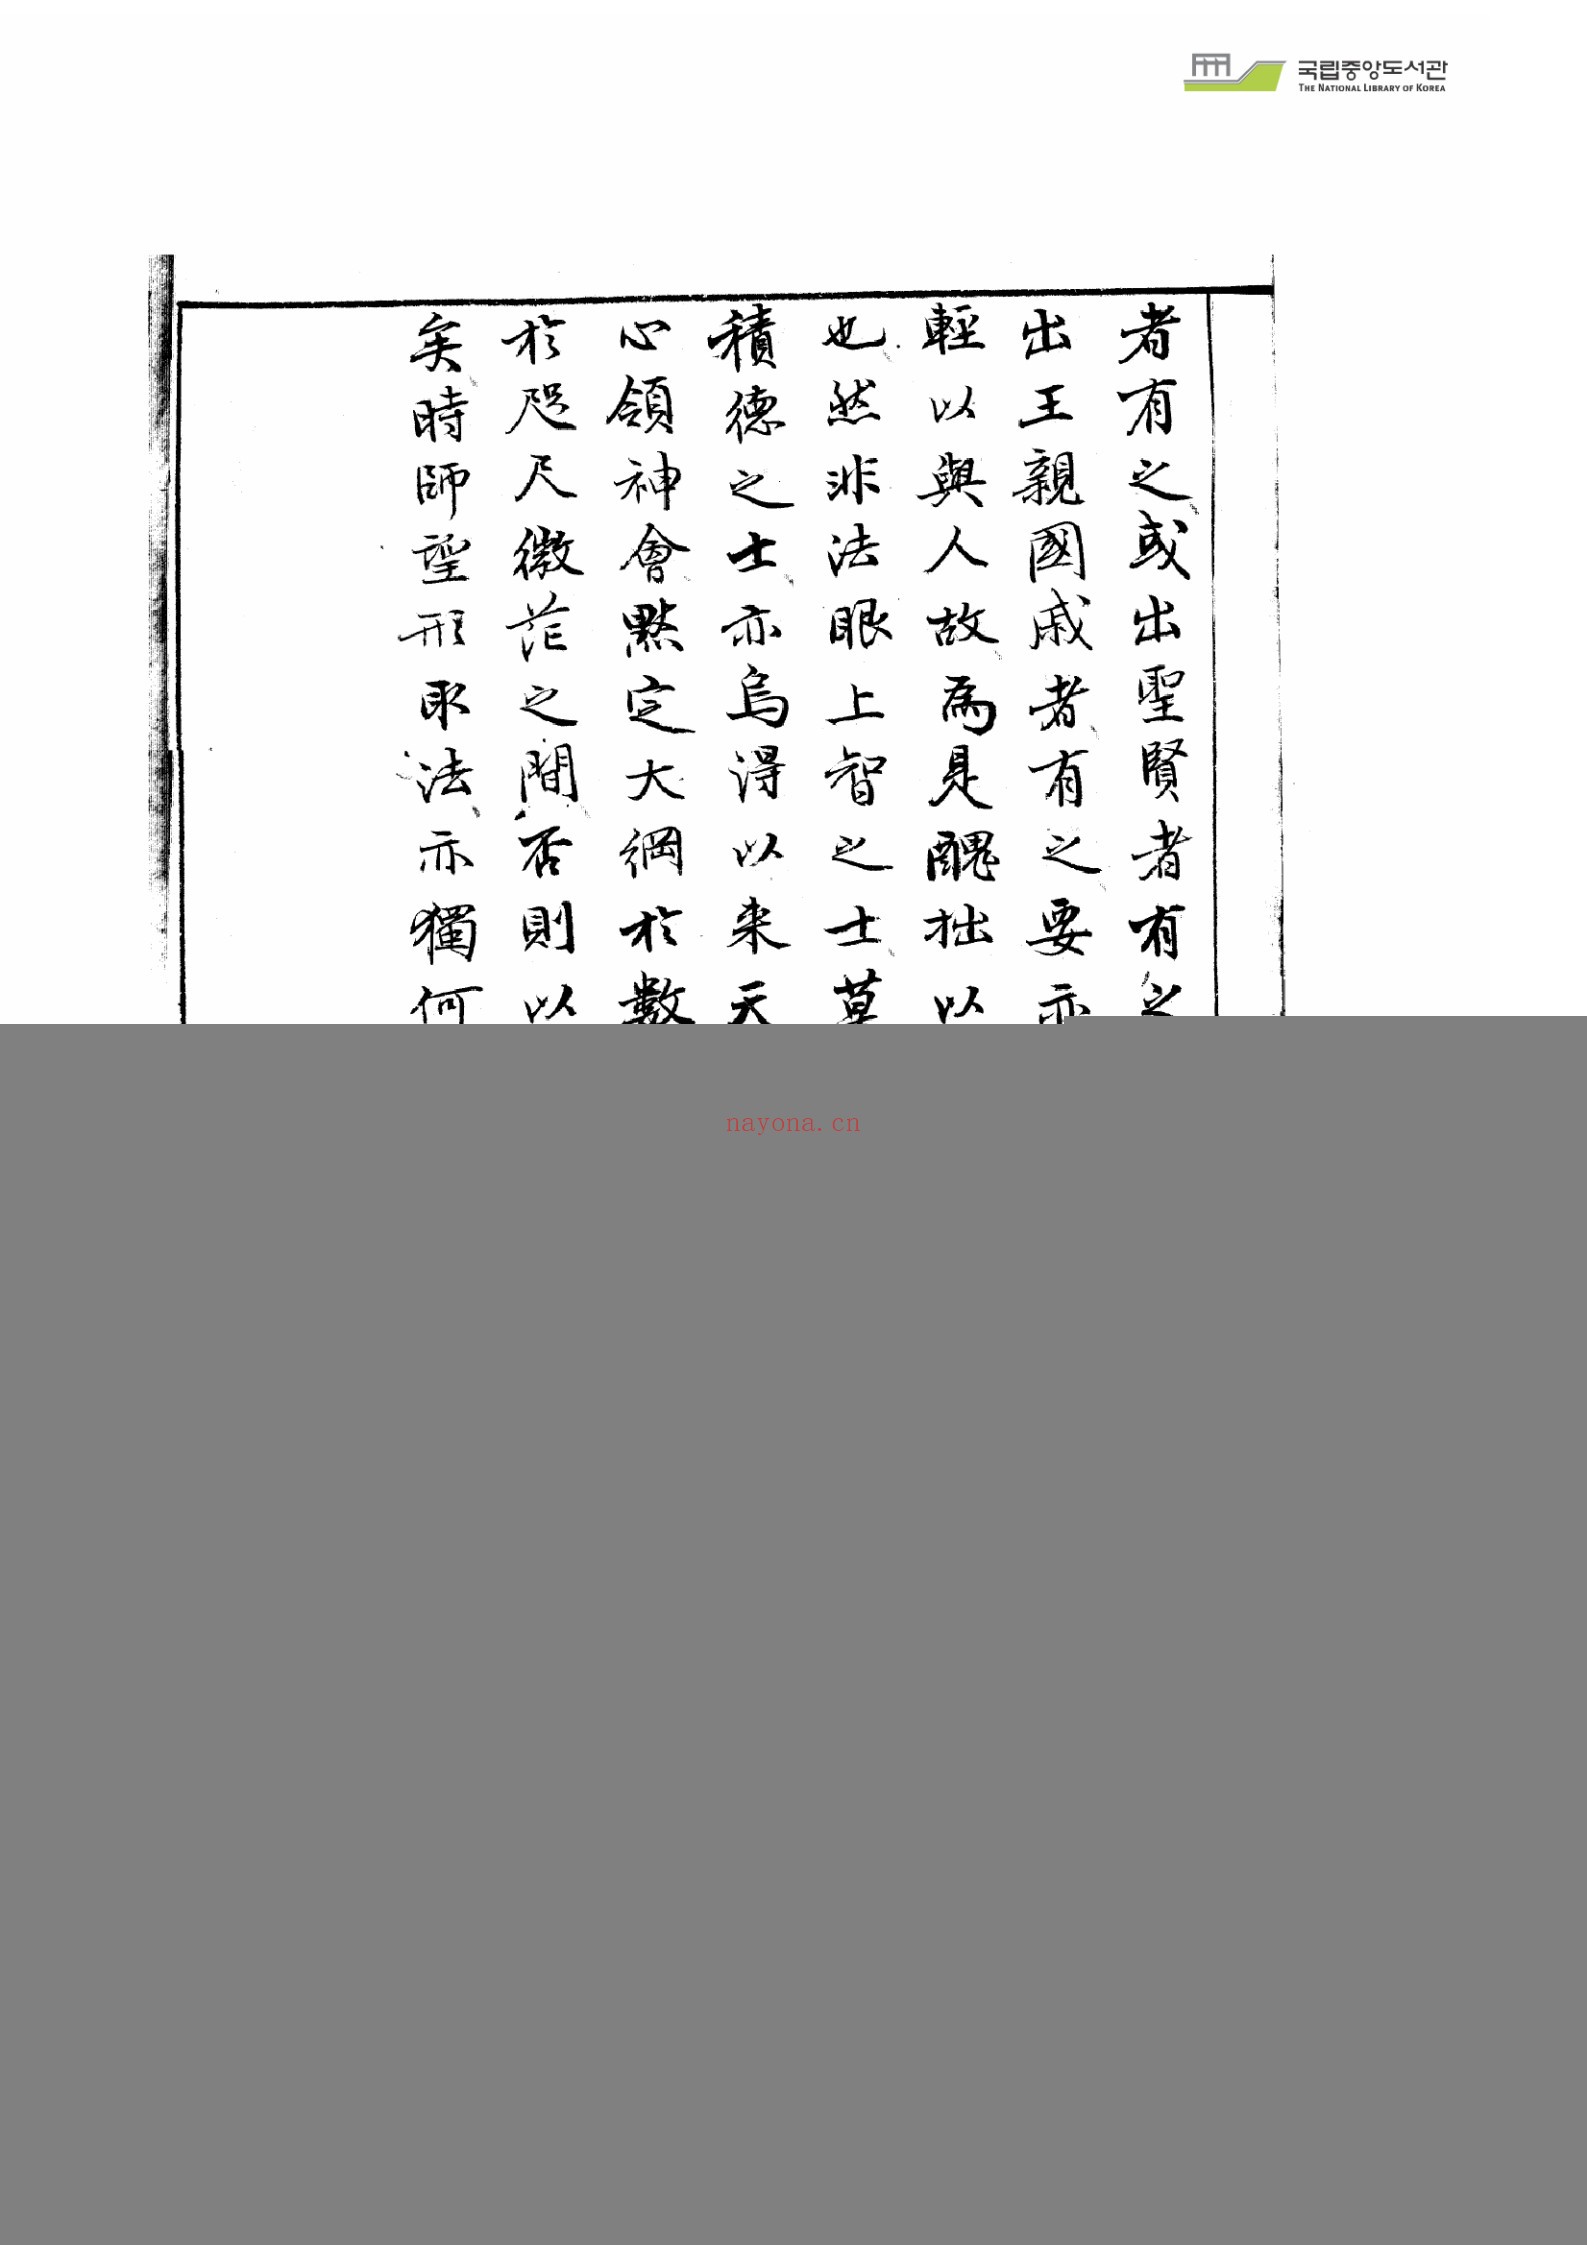 국립중앙도서관
THE NATIONAL LIBRARY OF KOREA
者有之或出聖賢者有之
出王親國戚者有之要亦
輕以與人故爲是醜拙以
也然非法眼上智之士莫
積德之士亦烏得以来天
心領神會默定大綱於數
於咫尺微茫之間否則以
矣時師望形取法亦獨何
nayona.cn